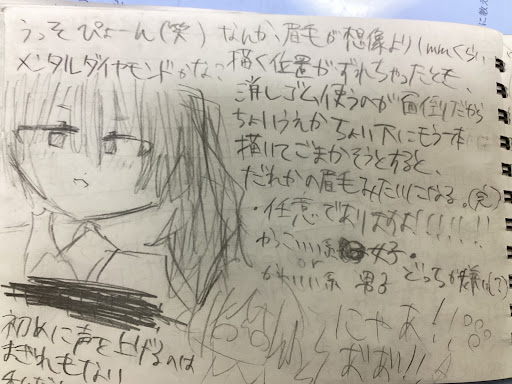 うっそぴょーん(笑)
メンタルダイヤモンドかなっ
なんか、眉毛が想像より1mmくらい
描く位置がずれちゃったとき、
消しゴム使うのが面倒だから
ちょいうえかちょい下にもう一本
描いてごまかそうとすると、
だれかの眉毛みたいになる。
・任意でありまぁす!!!!!!
かっこいい系 女子
or
かわいい系 男子
どっちが
にゃあ!!
おおい!!
初めに声を上げるのは
まぎれもない